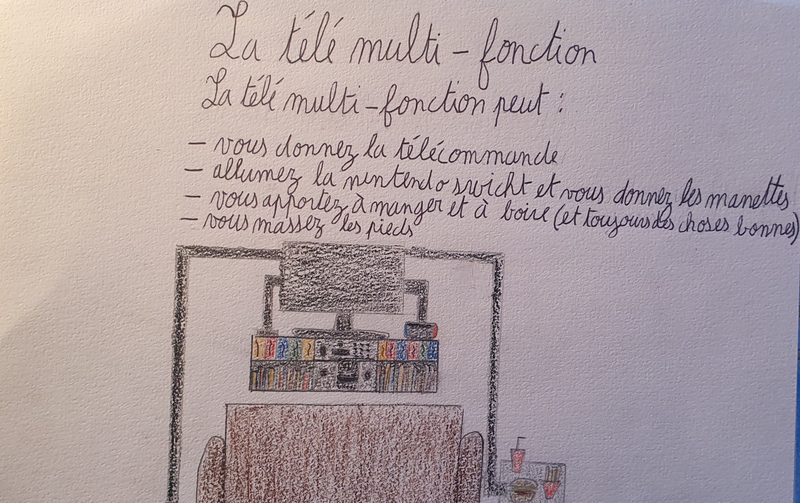 La télé multi-fonction
La télé multi-fonction peut :
- vous donnez la télécommande
- allumez la nintendo swicht et vous donnez les manettes
- vous apportez à manger et à boire (et toujours des choses bonnes)
- vous massez les pieds